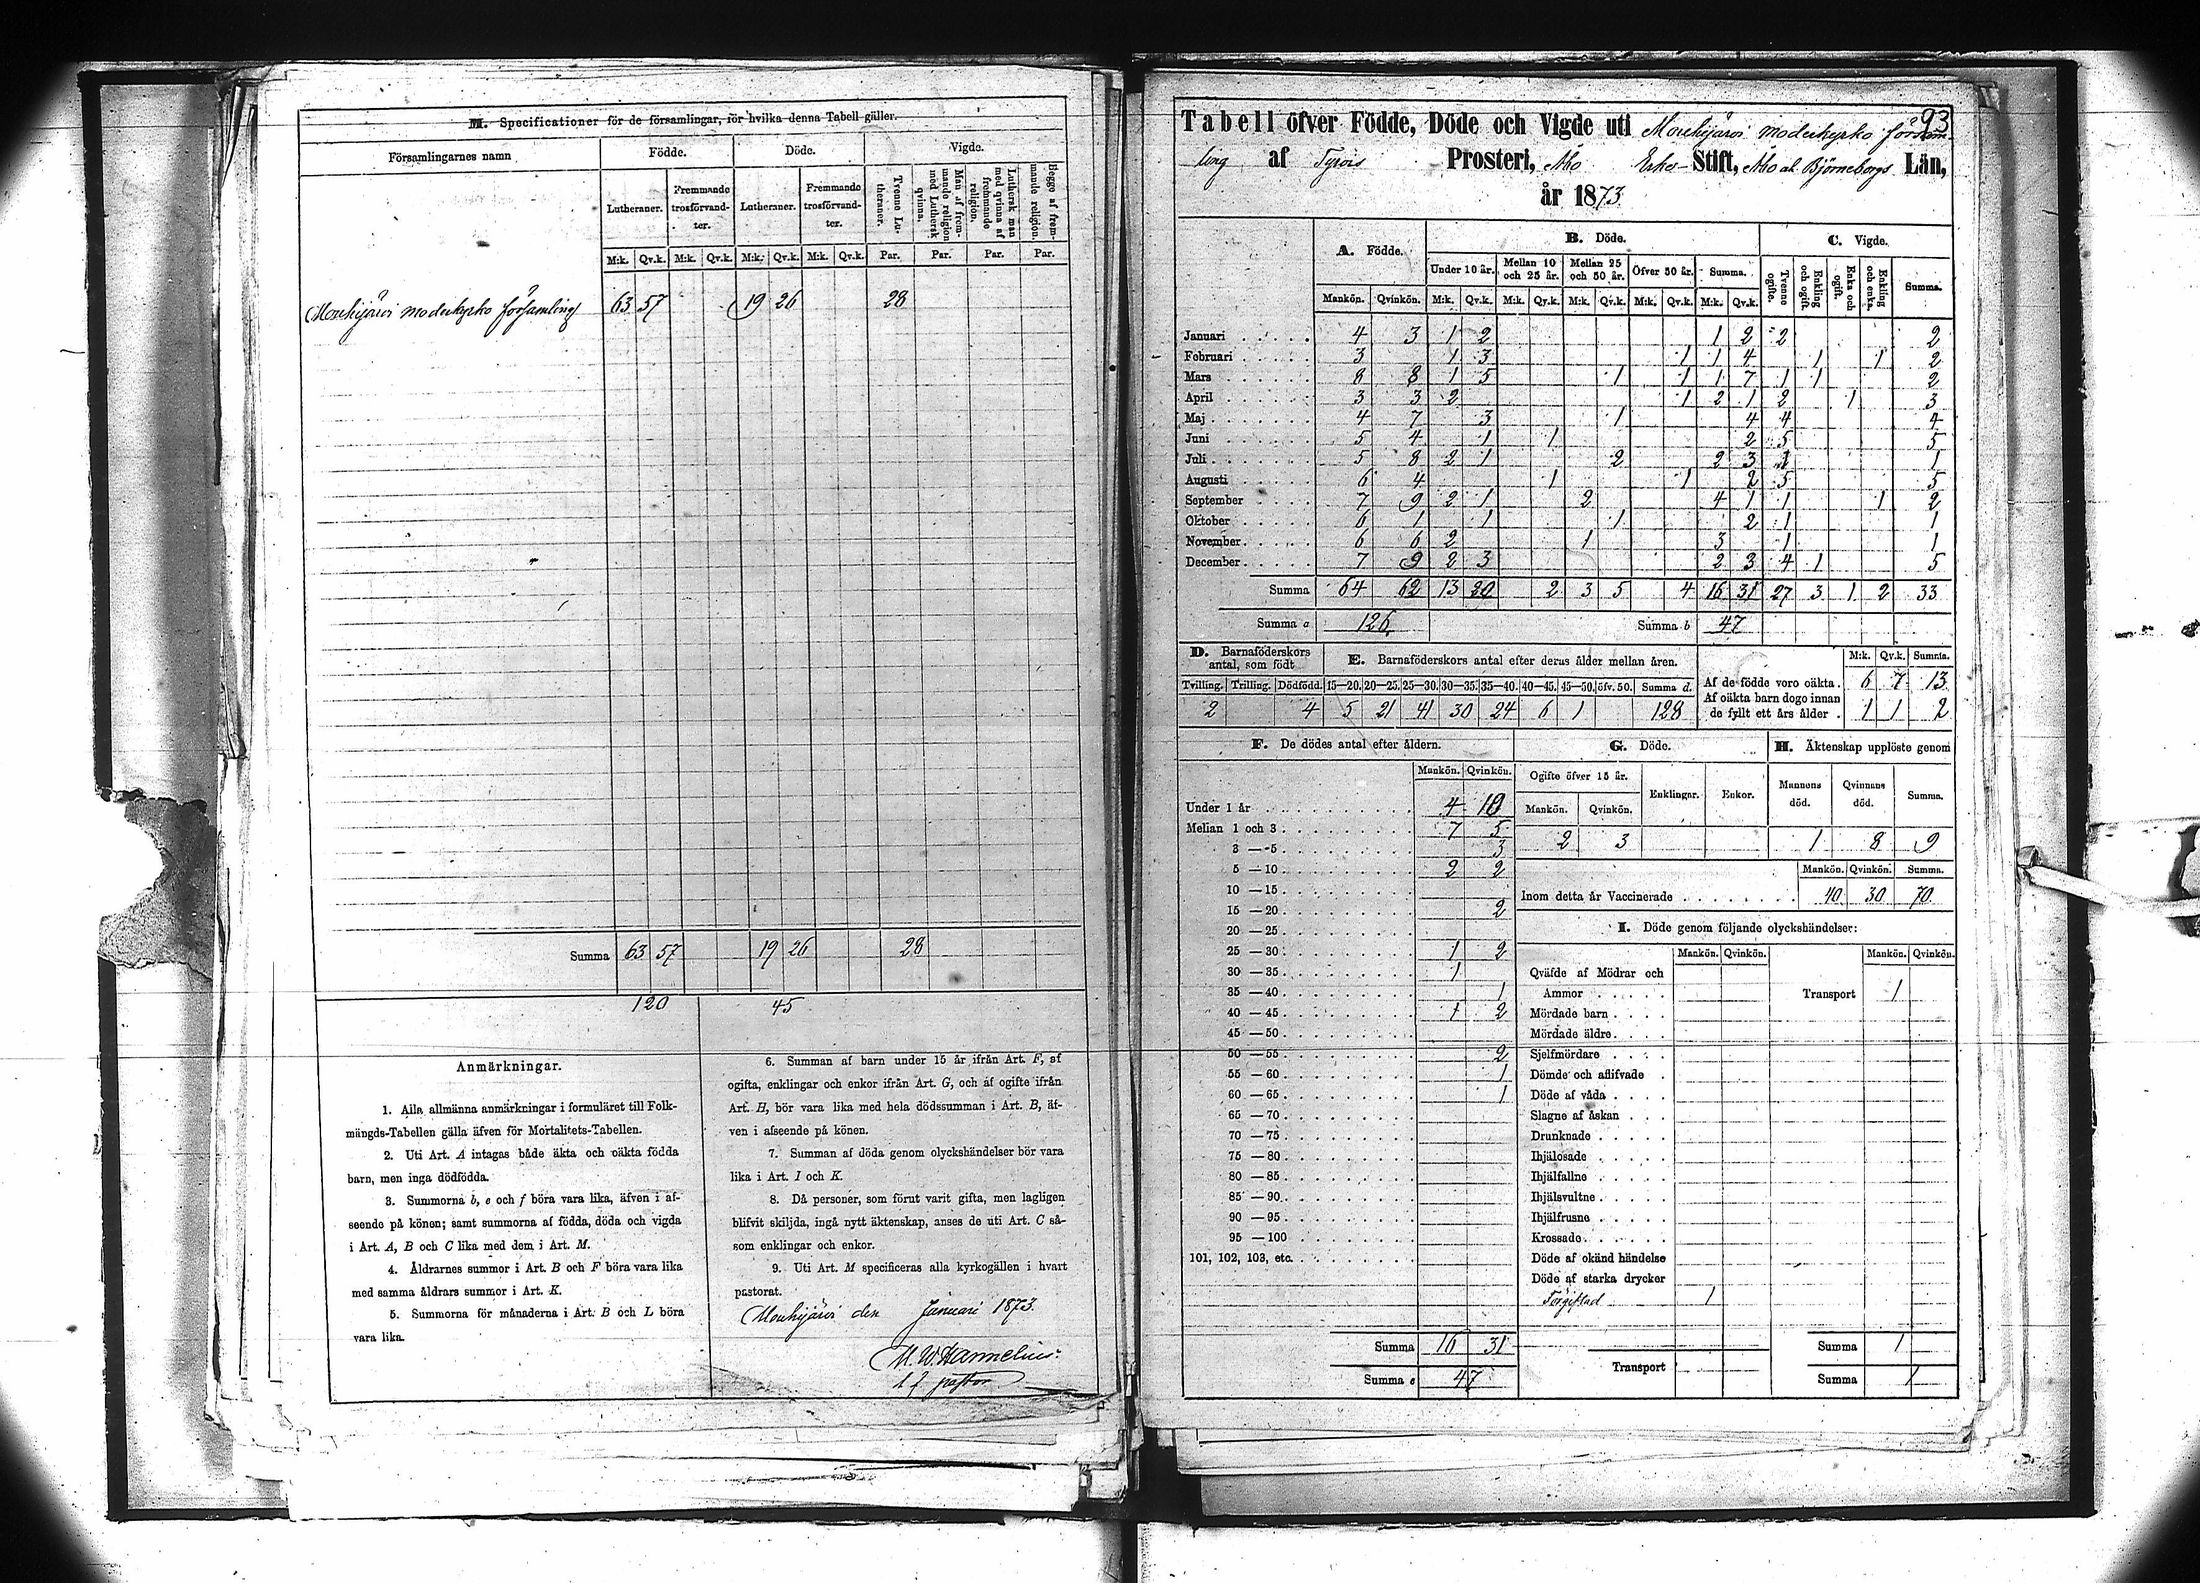 M. Specificationer för de församlingar, för hvilka denna Tabell gäller.
Församlingarnes namn
Födde. Döde. Vigde.
Lutheraner. Fremmande trosförvandter. Lutheraner. Fremmande trosförvandter. Tvenne Lutheraner. Man af frommande religion med Luthersk qvinna. Luthersk man med qvinna af frommande religion. Begge af fremmande religion.
M:k. Qv.k. M:k. Qv.k. M:k. Qv.k. M:k. Qv.k. Par. Par. Par. Par.
Mouhijärvi moderkyrko församling 63 57 19 26 28
Summa 63 57 19 26 28
120 45
Anmärkningar.
1. Alla allmänna anmärkningar i formuläret till Folk-
mängds-Tabellen gälla äfven för Mortalitets-Tabellen.
2. Uti Art. A intagas både äkta och oäkta födda
barn, men inga dödfödda.
3. Summorna b, e och f böra vara lika, äfven i af-
seende på könen; samt summorna af födda, döda och vigda
i Art. A, B och C lika med dem i Art. M.
4. Åldrarnes summor i Art. B och F böra vara lika
med samma åldrars summor i Art. K.
5. Summorna för månaderna i Art. B och L böra
vara lika.
6. Summan af barn under 15 år ifrån Art. F, af
ogifta, enklingar och enkor ifrån Art. G, och af ogifte ifrån
Art. H, bör vara lika med hela dödssumman i Art. B, äf-
ven i afseende på könen.
7. Summan af döda genom olyckshändelser bör vara
lika i Art. I och K.
8. Då personer, som förut varit gifta, men lagligen
blifvit skiljda, ingå nytt äktenskap, anses de uti Art. C så-
som enklingar och enkor.
9. Uti Art. M specificeras alla kyrkogällen i hvart
pastorat.
Mouhijärvi den Januari 1873.
M. W. Hannelius.
t f pastor
93
Tabell öfver Födde, Döde och Vigde uti Mouhijärvi moderkyrko försam-
ling af Tyrvis Prosteri, Åbo Erke-Stift, Åbo och Björneborgs Län,
år 1873
A. Födde. B. Döde. C. Vigde.
Under 10 år. Mellan 10 och 25 år. Mellan 25 och 50 år. Öfver 50 år. Summa. Tvenne ogifte. Enkling och ogift. Enka och ogift. Enkling och enka. Summa.
Mankön. Qvinkön. M:k. Qv.k. M:k. Qv.k. M:k. Qv.k. M:k. Qv.k. M:k. Qv.k.
Januari 4 3 1 2 1 2 2 2
Februari 3 1 3 1 1 4 1 1 2
Mars 8 8 1 5 1 1 1 7 1 1 2
April 3 3 2 1 2 1 2 1 3
Maj 4 7 3 1 4 4 4
Juni 5 4 1 1 2 5 5
Juli 5 8 2 1 2 2 3 1 1
Augusti 6 4 1 1 2 5 5
September 7 9 2 1 2 4 1 1 1 2
Oktober 6 1 1 1 2 1 1
November 6 6 2 1 3 1 1
December 7 9 2 3 2 3 4 1 5
Summa 64 62 13 20 2 3 5 4 16 31 27 3 1 2 33
Summa a 126. Summa b 47
D. Barnaföderskors antal, som födt
Tvilling. Trilling. Dödfödd.
2 4
E. Barnaföderskors antal efter deras ålder mellan åren.
15—20. 20—25. 25—30. 30—35. 35—40. 40—45. 45—50. öfv. 50. Summa d.
5 21 41 30 24 6 1 128
M:k. Qv.k. Summa.
Af de födde voro oäkta. 6 7 13
Af oäkta barn dogo innan
de fyllt ett års ålder. 1 1 2
F. De dödes antal efter åldern.
Mankön. Qvinkön.
Under 1 år 4 10
Mellan 1 och 3 7 5
3 — 5 3
5 — 10 2 2
10 — 15
15 — 20 2
20 — 25
25 — 30 1 2
30 — 35 1
35 — 40 1
40 — 45 1 2
45 — 50
50 — 55 2
55 — 60 1
60 — 65 1
65 — 70
70 — 75
75 — 80
80 — 85
85 — 90
90 — 95
95 — 100
101, 102, 103, etc.
Summa 16 31
Summa e 47
G. Döde.
Ogifte öfver 15 år. Enklingar. Enkor.
Mankön. Qvinkön.
2 3
H. Äktenskap upplöste genom
Mannens död. Qvinnans död. Summa.
1 8 9
Mankön. Qvinkön. Summa.
Inom detta år Vaccinerade 40 30 70
I. Döde genom följande olyckshändelser:
Mankön. Qvinkön. Mankön. Qvinkön.
Qväfde af Mödrar och
Ammor
Transport 1
Mördade barn
Mördade äldre
Sjelfmördare
Dömde och aflifvade
Döde af våda
Slagne af åskan
Drunknade
Ihjälosade
Ihjälfallne
Ihjälsvultne
Ihjälfrusne
Krossade
Döde af okänd händelse
Döde af starka drycker
Förgiftad 1
Summa 1
Transport
Summa 1